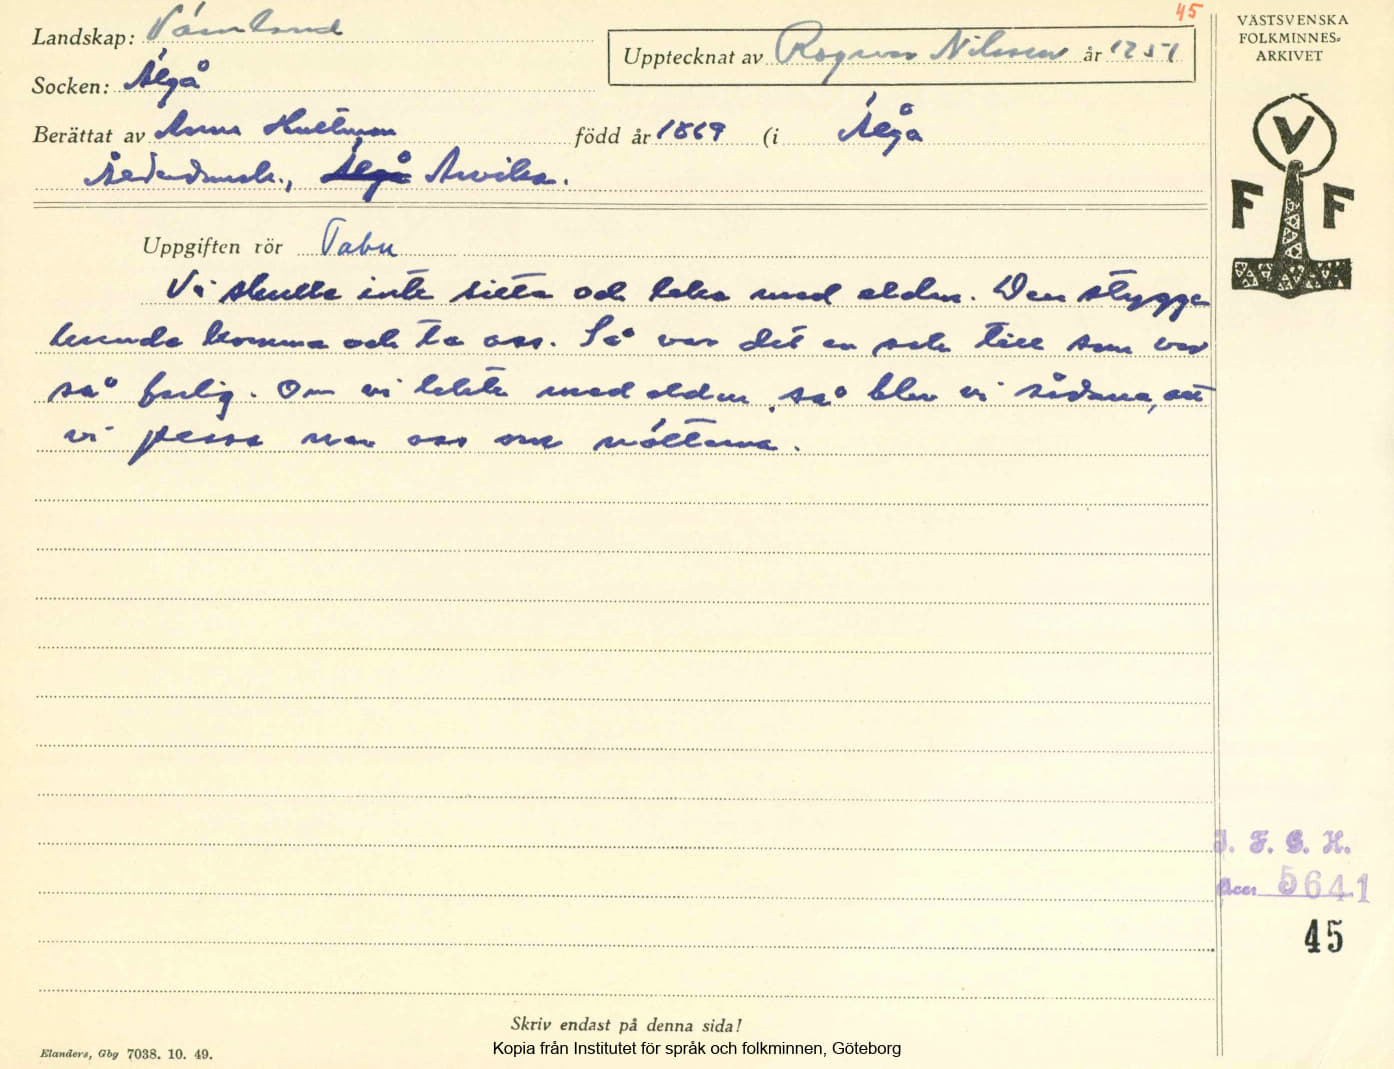 45
Landskap: Värmland
Upptecknat av Ragnar Nilsson år 1951
Socken: Älgå
Berättat av Anna Hultman född år 1869 (i Älgå
Älgå Arvika.
Uppgiften rör Tabu
Vi skulle inte sitta och leka med elden. Den stygge
kunde komma och ta oss. Så var det en sak till som var
så farlig. Om vi lekte med elden, så blev vi sådana, att
vi pessa ner oss om nätterna.
VÄSTSVENSKA
FOLKMINNES-
ARKIVET
V
F F
I. F. G. H.
Acc. 5641
45
Skriv endast på denna sida!
Elanders, Gbg 7038. 10. 49.
Kopia från Institutet för språk och folkminnen, Göteborg